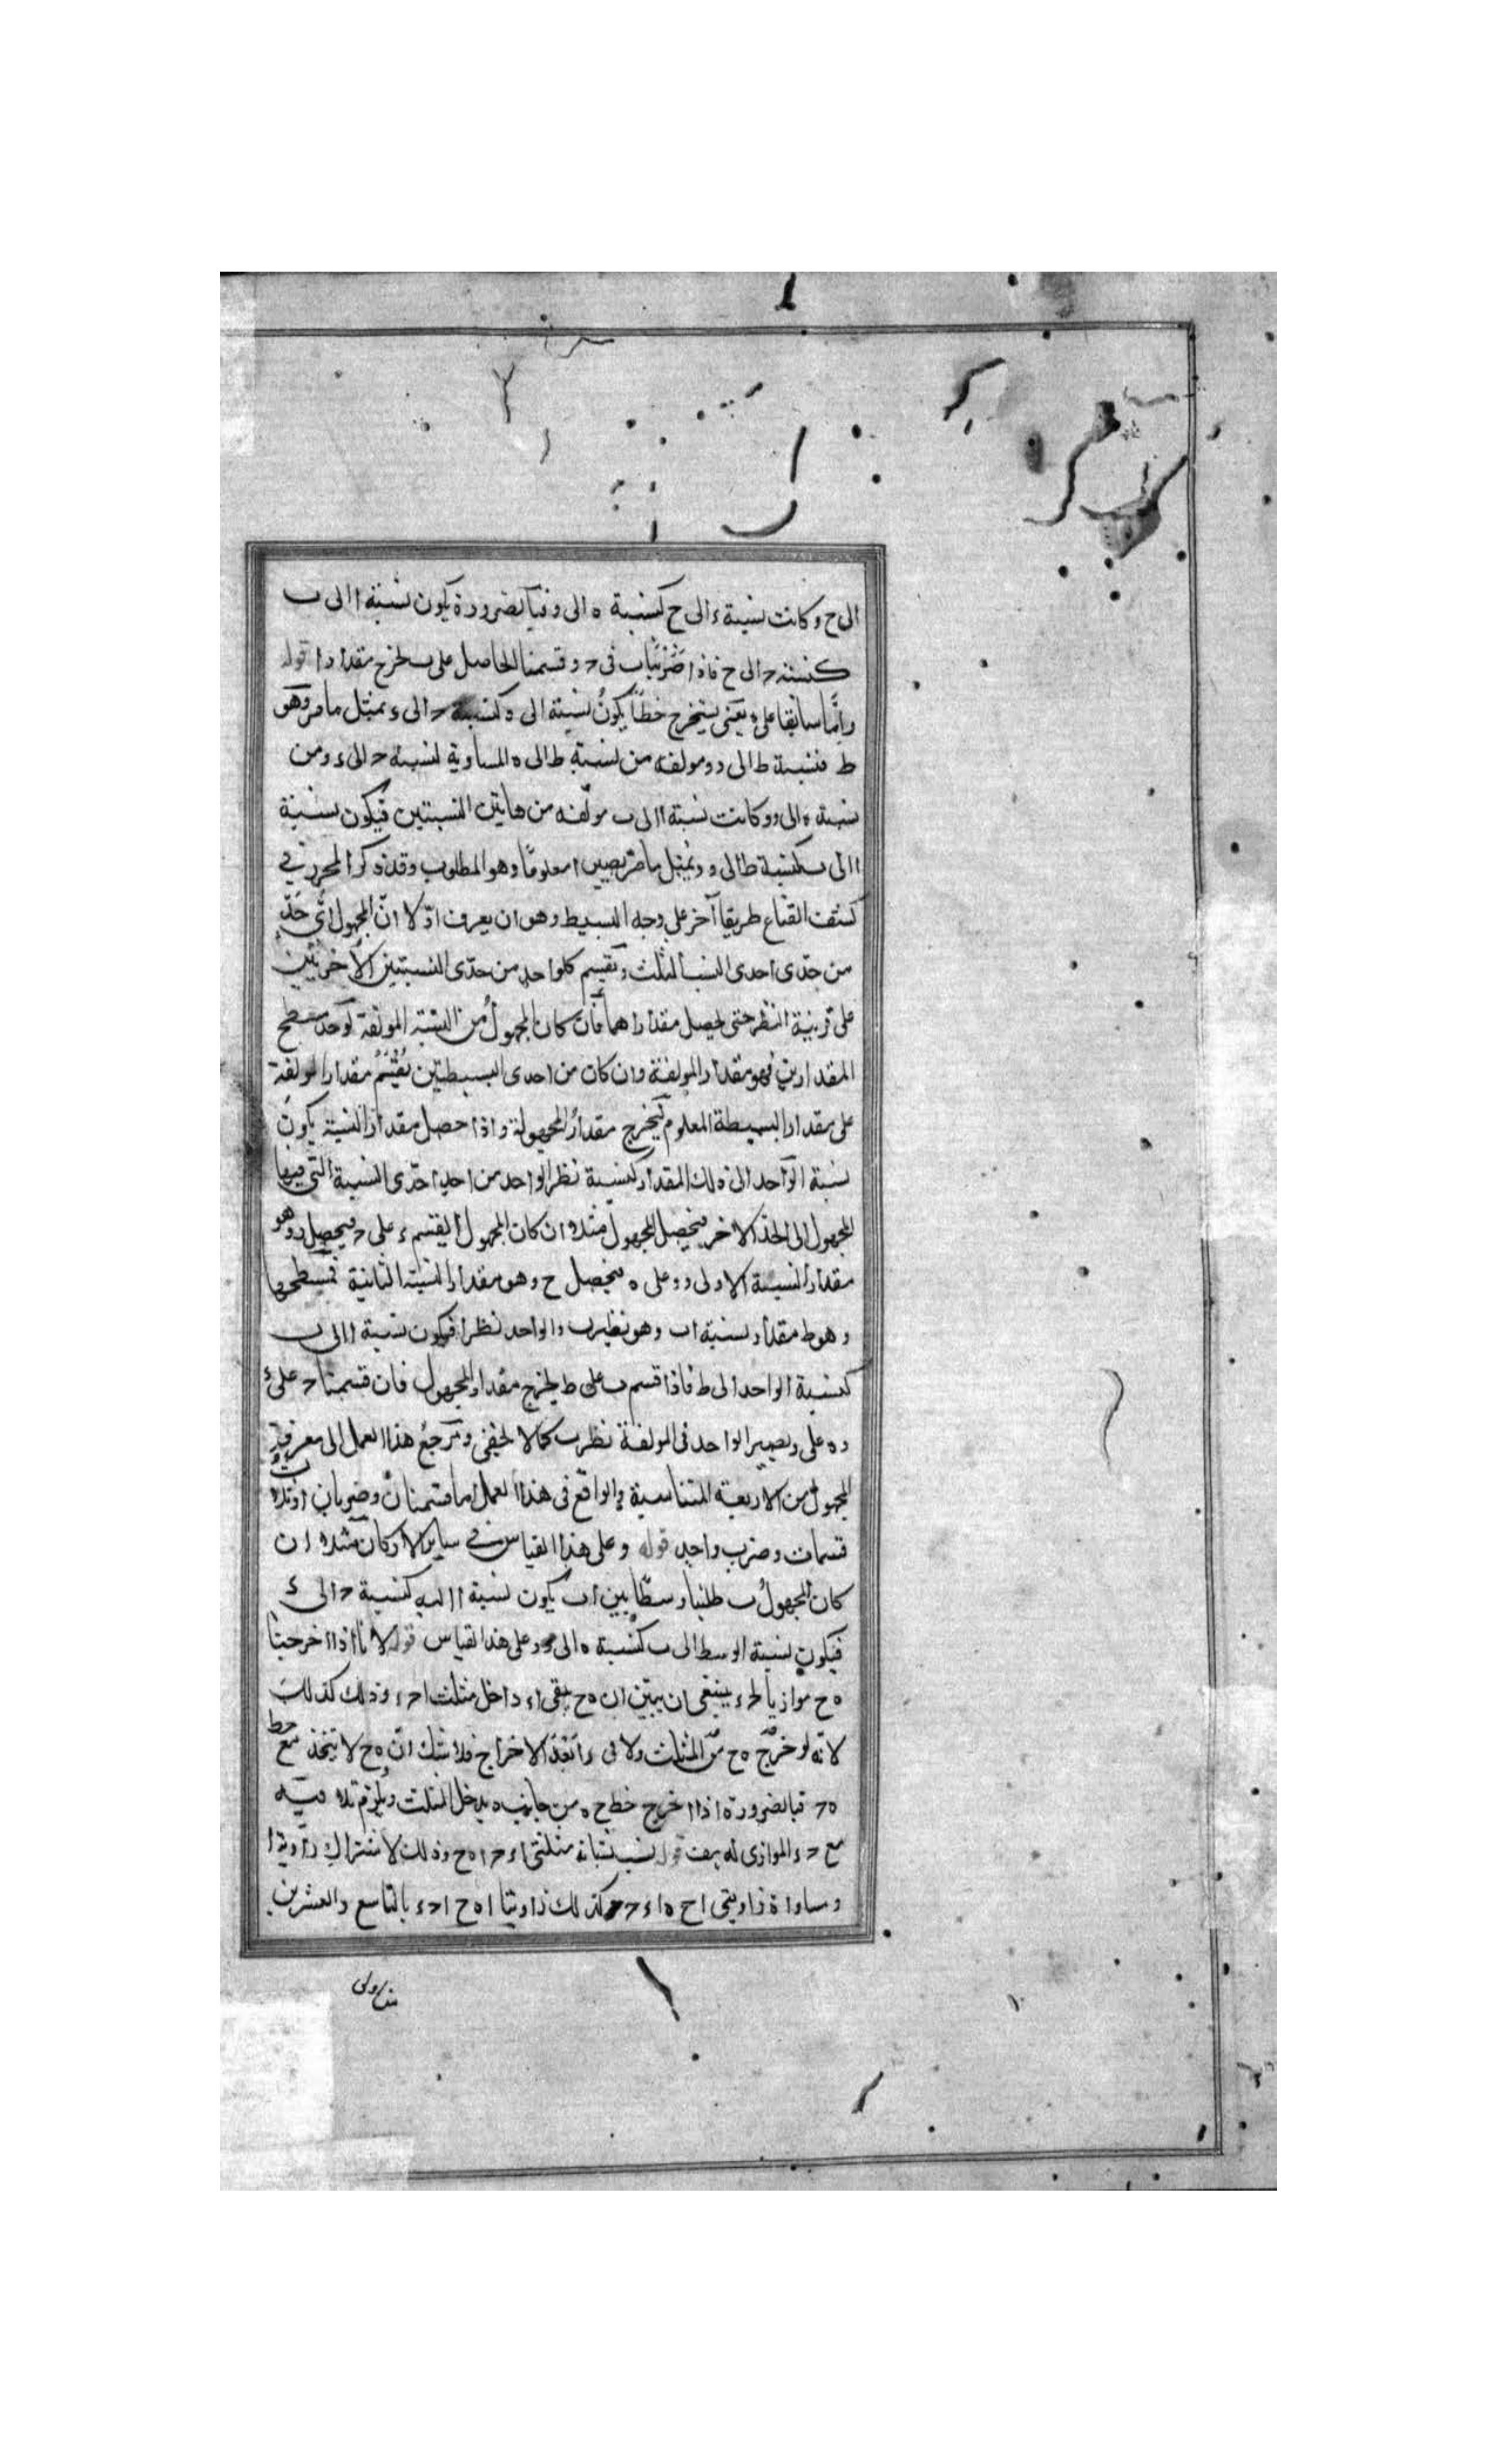 الى ح وكانت نسبة ء الى ح كنسبة ه الى و فبالضرورة يكون نسبة ا الى ب
كنسبة ح الى ح فاذا ضربنا ب فى ح وقسمنا الحاصل على ح خرج مقدار ا قوله
وامّا سابقا على ء يعنى يستخرج خطًا يكونُ نسبته الى ه كنسبة ح الى ء بمثل ما مر وهو
ط فنسبة ط الى و مولفه من نسبة ط الى ه المساوية لنسبة ح الى ء ومن
نسبة ه الى و وكانت نسبة ا الى ب مولّفه من هاتين النسبتين فيكون نسبة
ا الى ب كنسبة ط الى و وبمثل ما مرّ يصير ا معلومًا وهو المطلوب وقد ذكر المحرر فى
كشف القناع طريقا آخر على وجه البسيط وهو ان يعرف اوّلا انّ المجهول اىّ حدٍّ
من حدّى احدى النسب الثلث ونقسم كلواحد من حدّى النسبتين الأخريين
على قرينة النظر حتى يحصل مقداراهما فان كان المجهولُ من النسبة المولفة يوخذ مسطح
المقدارين فهو مقدار المولفة وان كان من احدى البسيطتين نُقسّمُ مقدار المولفة
على مقدار البسيطة المعلوم ليخرج مقدارُ المجهولة واذا حصل مقدار النسبة يكون
نسبة الواحد الى ذلك المقدار كنسبة نظر الواحد من احد حدّى النسبة التى فيها
المجهول الى الحد الاخر فيحصل المجهول مثلا ان كان المجهول ا يقسم ء على ح فيحصل ر وهو
مقدار النسبة الاولى و و على ه فيحصل ح وهو مقدار النسبة الثانية فمسطحهما
وهو ط مقدار نسبة ا ب وهو نظير ب والواحد نظر ا فيكون نسبة ا الى ب
كنسبة الواحد الى ط فاذا قسم ب على ط يخرج مقدار المجهول فان قسمنا ح على ء
و ه على و يصير الواحد فى المولفة نظر ب كما لا يخفى ويرجع هذا العمل الى معرفة
المجهول من الاربعة المتناسبة والواقع فى هذا العمل اما قسمتان وضربان او ثلاث
قسمات وضرب واحد قوله وعلى هذا القياس فى سائر الاركان مثلا ان
كان المجهولُ ب طلبنا وسطًا بين ا ب يكون نسبة ا اليه كنسبة ح الى ء
فيكون نسبة الوسط الى ب كنسبة ه الى و وعلى هذا القياس قوله لانّا اذا اخرجنا
ه ح موازيا لح ء ينبغى ان يبيّن ان ه ح يبقى داخل مثلث ا ح ء وذلك كذلك
لانّه لو خرج ه ح من المثلث ولاقى ء ا بعد الاخراج فلا شك انّ ه ح لا يتحد مع خط
ه ح فبالضرورة اذا اخرج خط ح ه من جانب ه يدخل المثلث ويلزم تلاقيه
مع ح ء الموازى له هف قوله لتشابه مثلثى ا ء ح ا ه ح وذلك لاشتراك زاوية ا
ومساواة زاويتى ا ح ه ا ء ح وكذلك زاويتا ا ه ح ا ح ء بالتاسع والعشرين